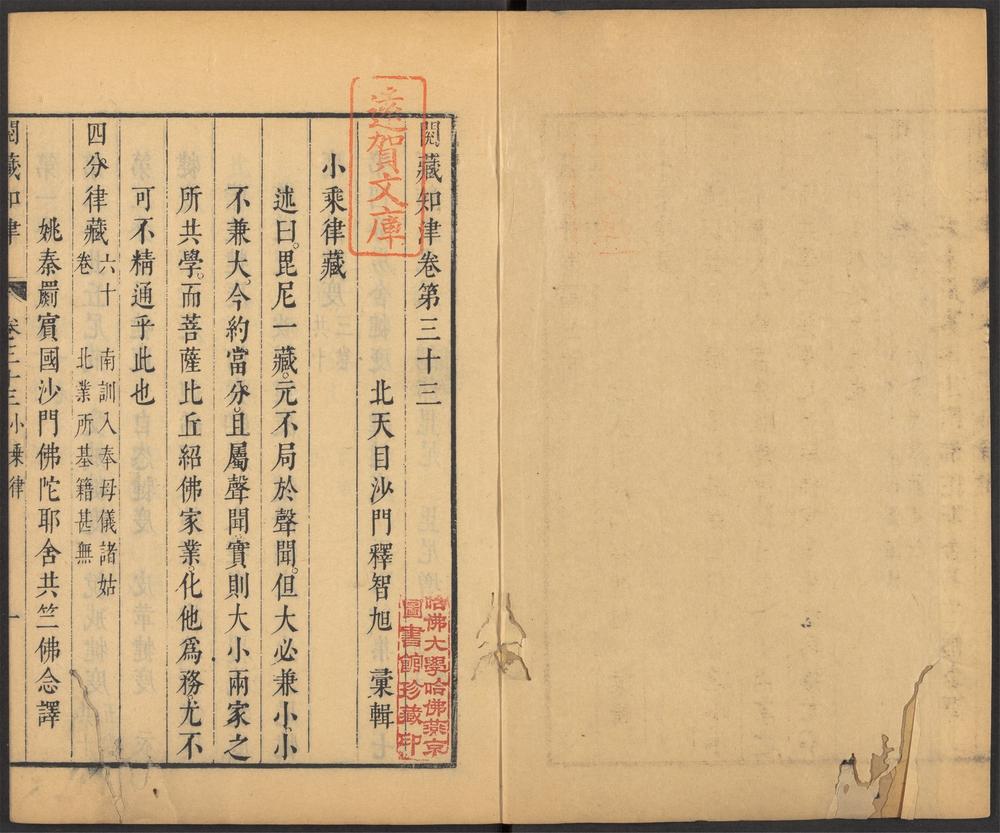 閱藏知津卷第三十三
北天目沙門釋智旭 彙輯
小乘律藏
述曰。毘尼一藏。元不局於聲聞。但大必兼小。小
不兼大。今約當分。且屬聲聞。實則大小兩家之
所共學。而菩薩比丘紹佛家業。化他為務。尤不
可不精通乎此也
四分律藏 六十卷 南訓入奉母儀諸姑 北業所基籍甚無
姚秦罽賓國沙門佛陀耶舍共竺佛念譯
閱藏知津 卷三十三 小乘律 一
遠賀文庫
哈佛大學哈佛燕京
圖書館珍藏印